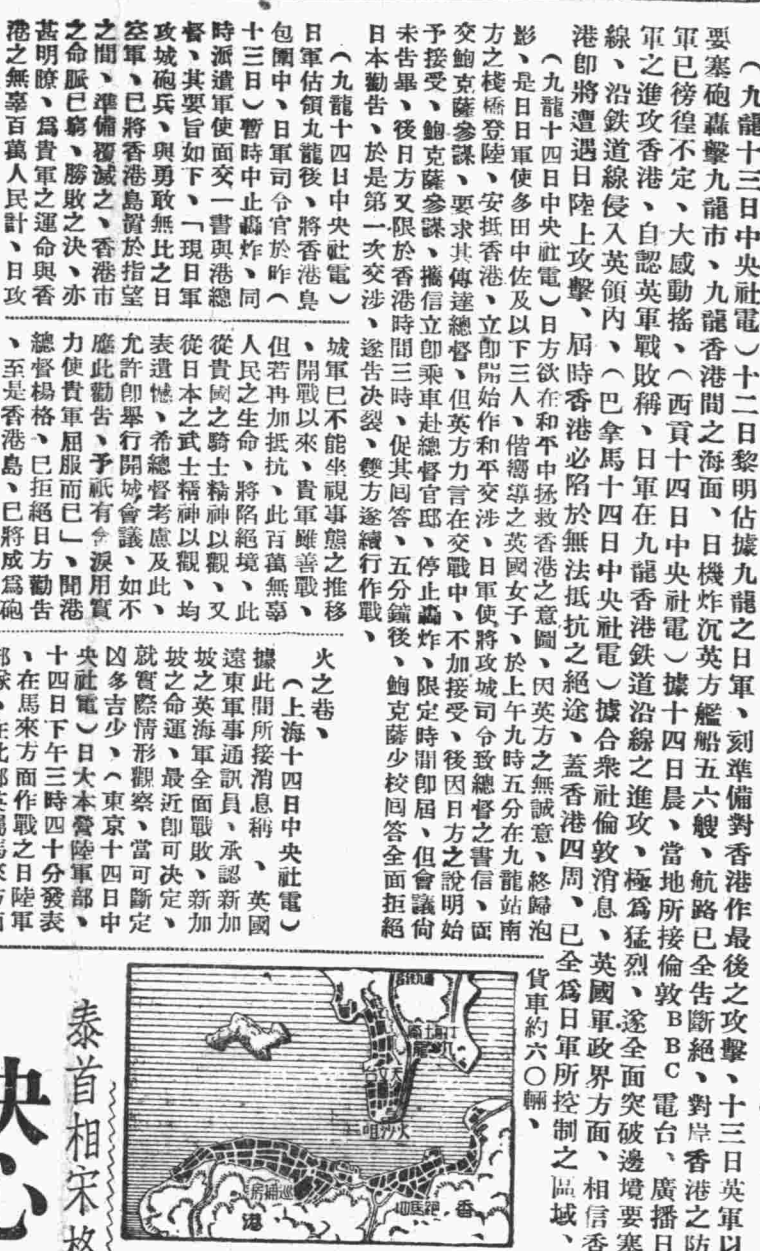 （九龍十三日中央社電）十二日黎明佔據九龍之日軍、刻準備對香港作最後之攻擊、十三日英軍以
要塞砲轟擊九龍市、九龍香港間之海面、日機炸沉英方艦船五六艘、航路已全告斷絕、對岸香港之防
軍已徬徨不定、大感動搖、（西貢十四日中央社電）據十四日晨、當地所接倫敦BBC電台、廣播日
軍之進攻香港、自認英軍戰敗稱、日軍在九龍香港鉄道沿線之進攻、極爲猛烈、遂全面突破邊境要塞
線、沿鉄道線侵入英領內、（巴拿馬十四日中央社電）據合衆社倫敦消息、英國軍政界方面、相信香
港卽將遭遇日陸上攻擊、屆時香港必陷於無法抵抗之絕途、蓋香港四周、已全爲日軍所控制之區域、
（九龍十四日中央社電）日方欲在和平中拯救香港之意圖、因英方之無誠意、終歸泡
影、是日日軍使多田中佐及以下三人、偕嚮導之英國女子、於上午九時五分在九龍站南
方之棧橋登陸、安抵香港、立卽開始作和平交涉、日軍使將攻城司令致總督之書信、面
交鮑克薩參謀、要求其傳達總督、但英方力言在交戰中、不加接受、後因日方之說明始
予接受、鮑克薩參謀、攜信立卽乘車赴總督官邸、停止轟炸、限定時間卽屆、但會議尙
未告畢、後日方又限於香港時間三時、促其囘答、五分鐘後、鮑克薩少校囘答全面拒絕
日本勸告、於是第一次交涉、遂告決裂、雙方遂續行作戰、
（九龍十四日中央社電）
日軍佔領九龍後、將香港島
包圍中、日軍司令官於昨（
十三日）暫時中止轟炸、同
時派遣軍使面交一書與港總
督、其要旨如下、「現日軍
攻城砲兵、與勇敢無比之日
空軍、已將香港島置於指望
之間、準備覆滅之、香港市
之命脈已窮、勝敗之決、亦
甚明瞭、爲貴軍之運命與香
港之無辜百萬人民計、日攻
城軍已不能坐視事態之推移
、開戰以來、貴軍雖善戰、
但若再加抵抗、此百萬無辜
人民之生命、將陷絕境、此
從貴國之騎士精神以觀、又
從日本之武士精神以觀、均
表遺憾、希總督考慮及此、
允許卽舉行開城會議、如不
應此勸告、予祇有含淚用實
力使貴軍屈服而已」、聞港
總督楊格、已拒絕日方勸告
、至是香港島、已將成爲砲
火之巷、
（上海十四日中央社電）
據此間所接消息稱、英國
遠東軍事通訊員、承認新加
坡之英海軍全面戰敗、新加
坡之命運、最近卽可決定、
就實際情形觀察、當可斷定
凶多吉少、（東京十四日中
央社電）日大本營陸軍部、
十四日下午三時四十分發表
、在馬來方面作戰之日陸軍
貨車約六〇輛、
天文台
尖沙咀
巡捕房
跑馬地
香
港
泰首相宋
決心